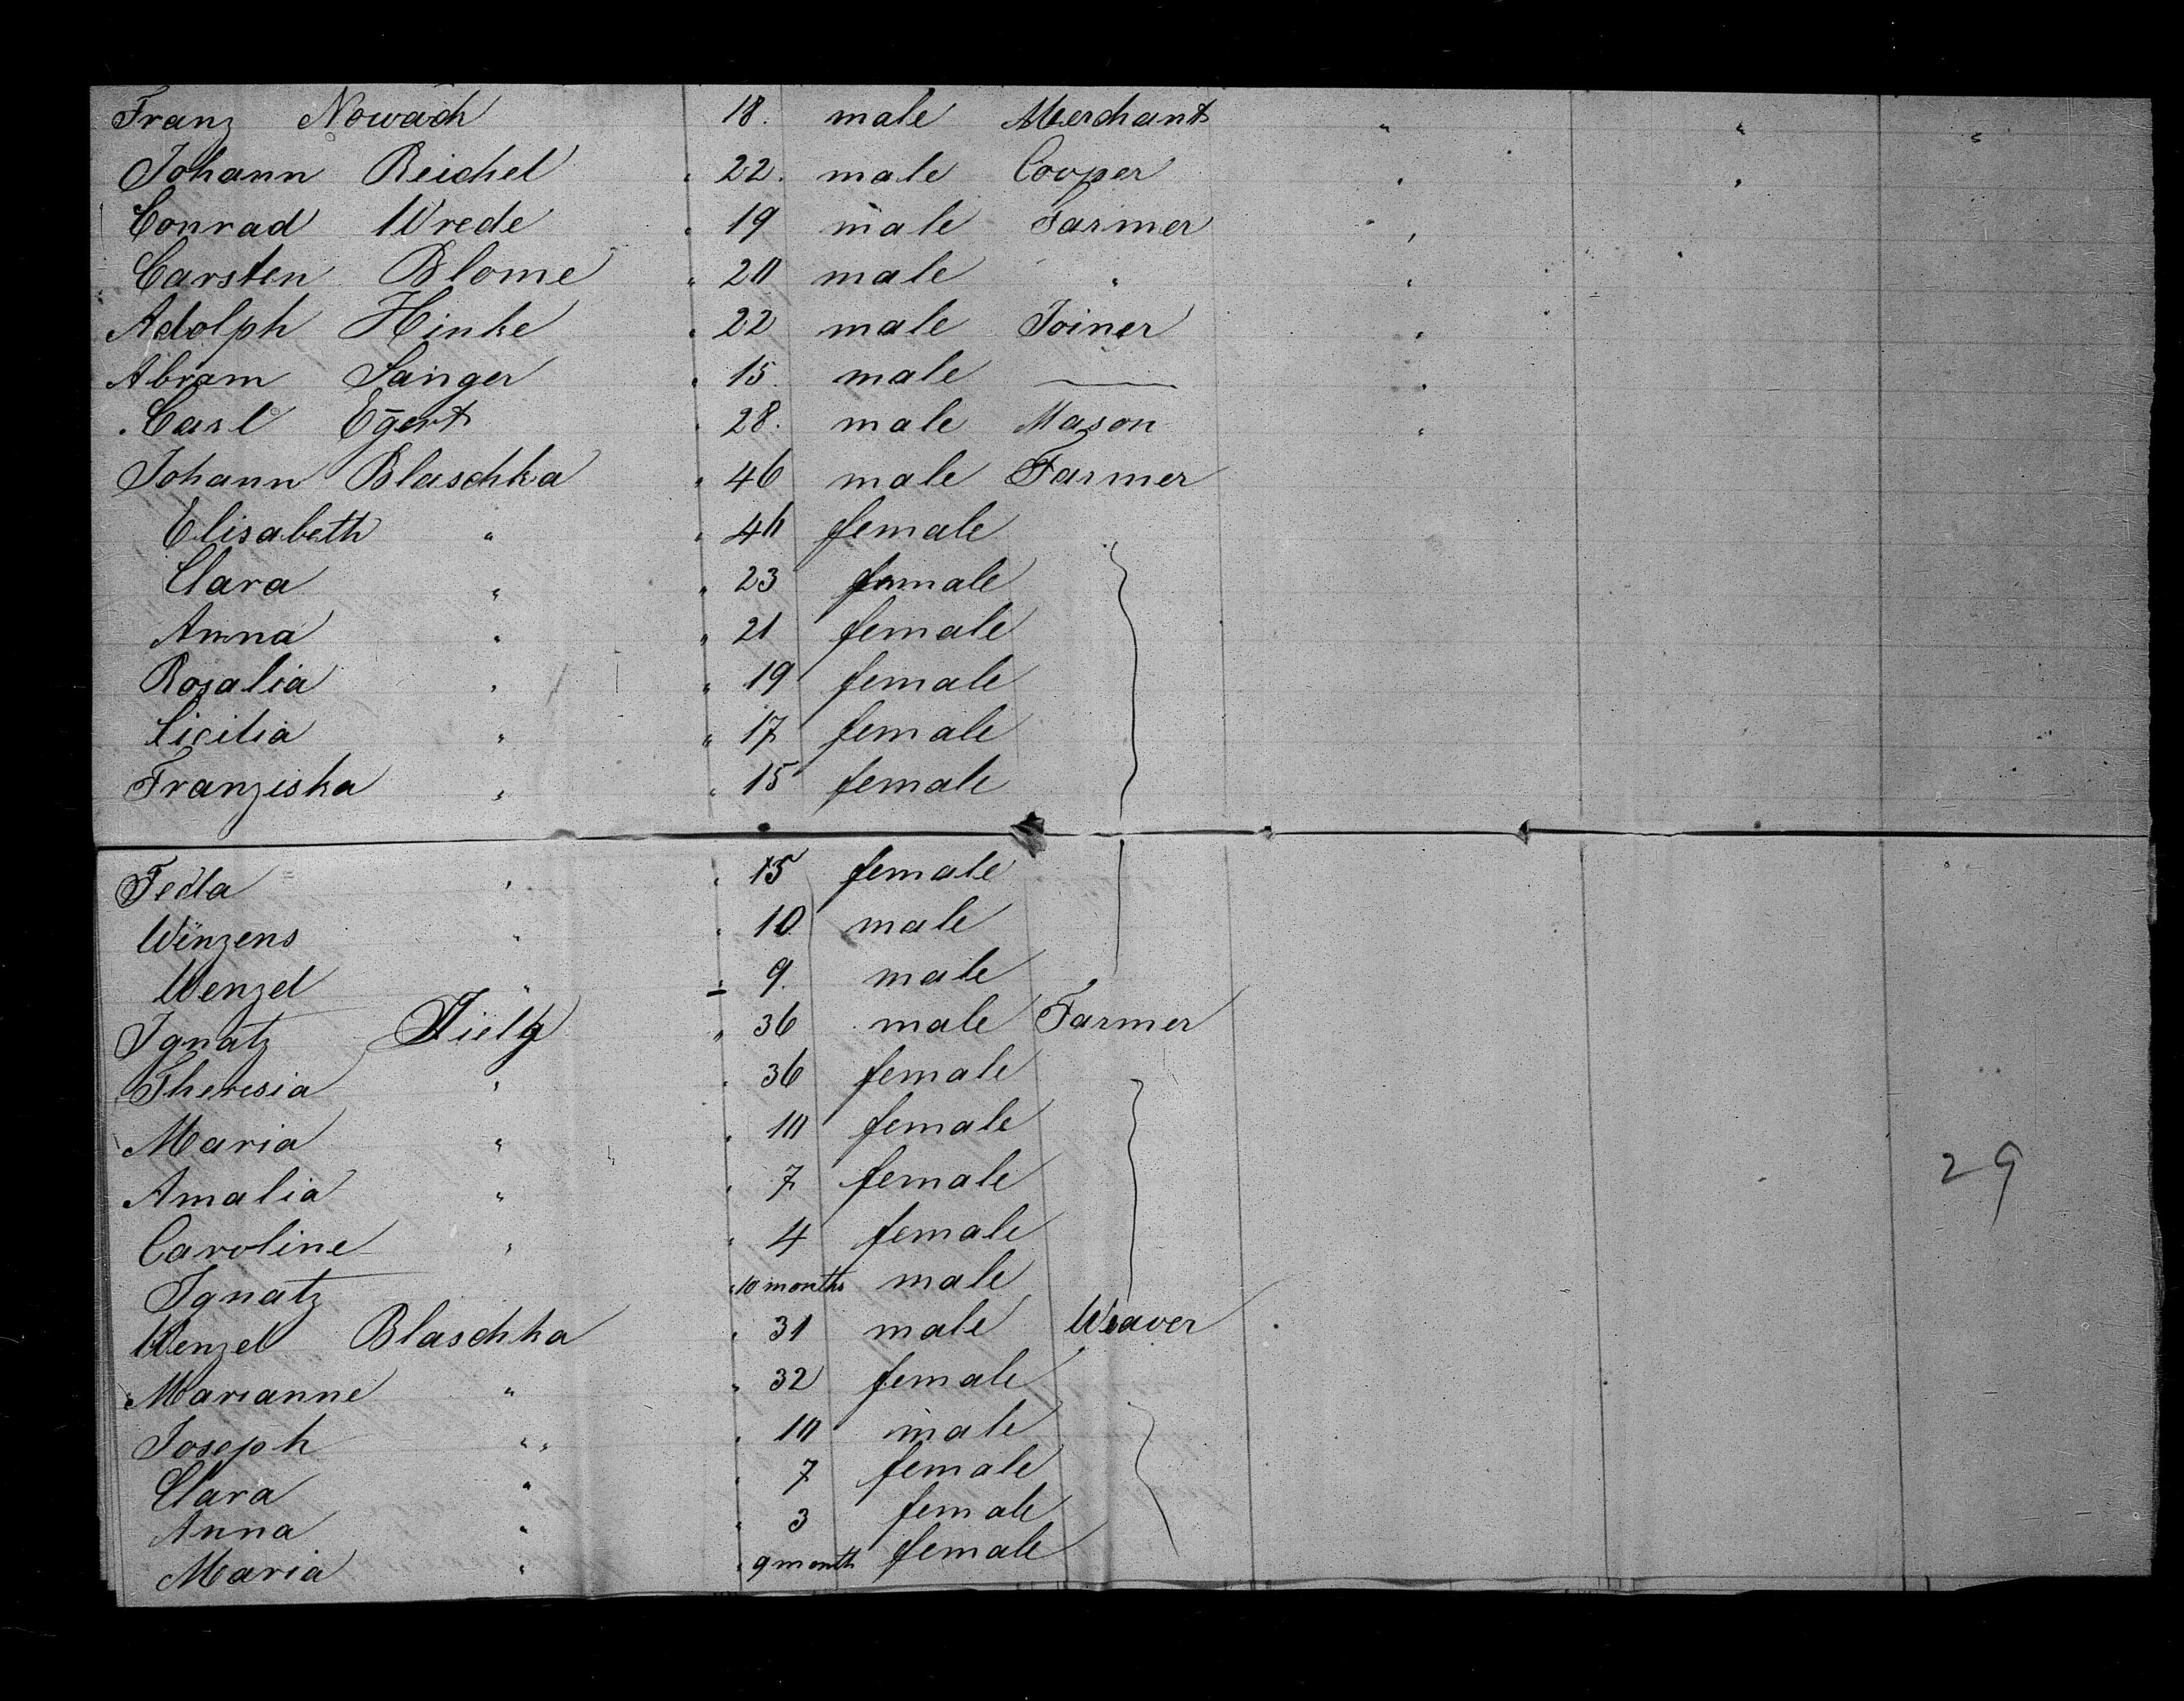 Franz Nowach 18. male Merchant " " "
Johann Reichel " 22. male Cooper " "
Conrad Wrede " 19 male Farmer "
Carsten Blome " 20 male " "
Adolph Hinke " 22 male Joiner "
Abram Sänger " 15. male — "
Carl Egert " 28. male Mason "
Johann Blaschka " 46 male Farmer
Elisabeth " " 40 female
Clara " " 23 female
Anna " " 21 female
Rosalia " " 19 female
Cicilia " " 17 female
Franziska " " 15 female
Tecla " " 15 female
Winzens " " 10 male
Wenzel " " 9. male
Ignatz " 36 male Farmer
Theresia " " 36 female
Maria " " 10 female
Amalia " " 7 female
29
Caroline " " 4 female
Ignatz " 10 months male
Wenzel Blaschka " 31 male Weaver
Marianne " " 32 female
Joseph " " 10 male
Clara " " 7 female
Anna " " 3 female
Maria " " 9 month female